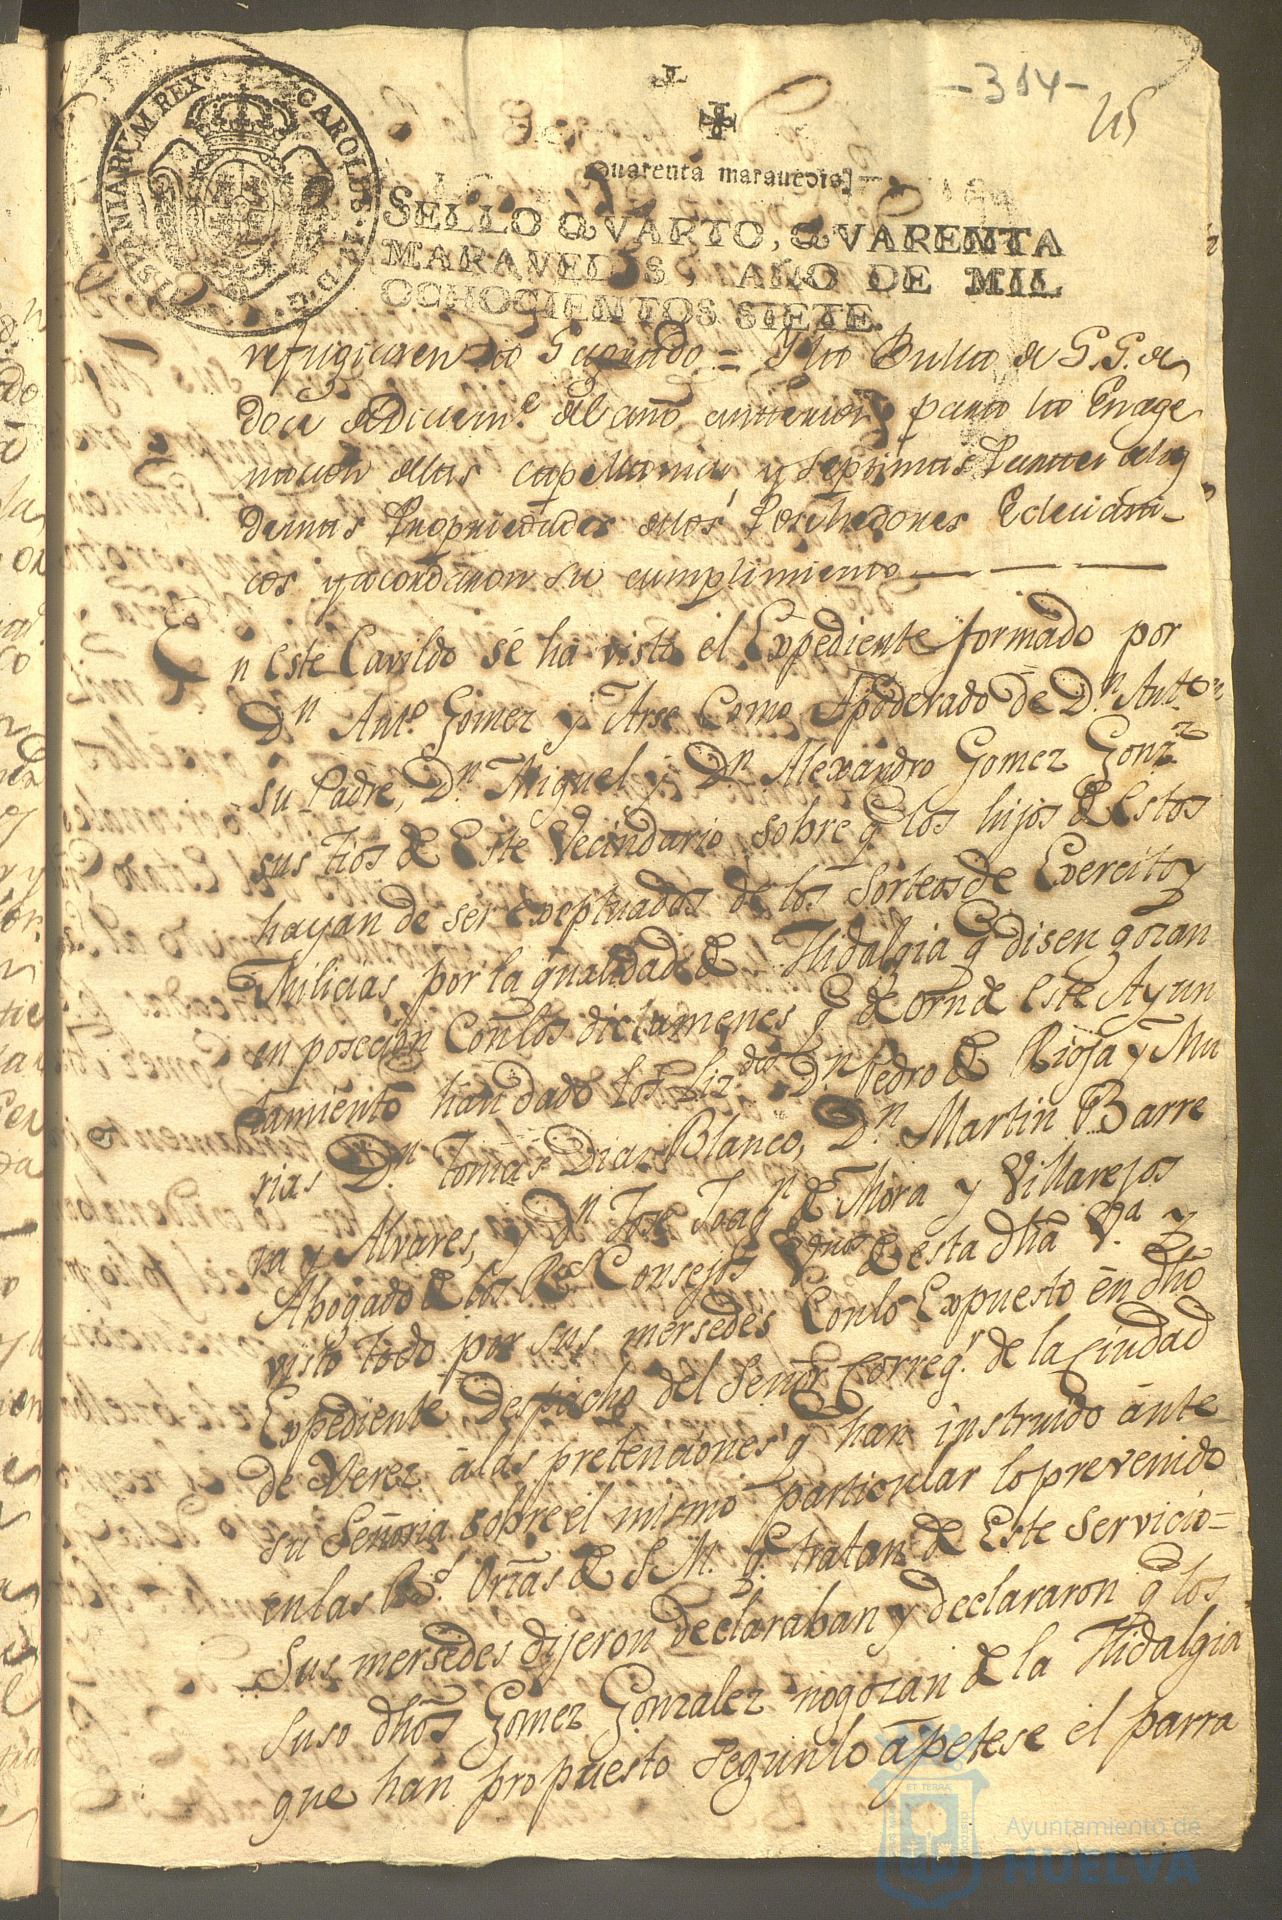 -314-
45
HISPANIARUM REX. CAROLUS. IV. D. G.
Quarenta maravedis
SELLO QVARTO, QVARENTA
MARAVEDIS, AÑO DE MIL
OCHOCIENTOS SIETE.
refugiaren a Sagrado = Y la Bulla de S. S. de
doce de Diciemᵉ. del año antterior, para la Enage
nacion de las capellanias y septimas Parttes de las
demas Propriedades de los Poseedores Eclecianti-
cos y acordaron su cumplimiento
En este Cavildo sé ha visto el Expediente formado por
Dⁿ Antᵒ. Gomez y Arse Como Apoderado de Dⁿ. Antᵒ.
su Padre, Dⁿ. Miguel y Dⁿ Alexandro Gomez Gonzᶻ
sus tios de Este Vecindario sobre q̃ los hijos de Estos
hayan de ser exeptuados de los Sorteos de Exercito y
Milicias por la qualidad de Hidalgia q̃ disen gozan
en poseción Con los dictamenes q̃ de orn de Este Ayun
tamiento han dado los Lizᵈᵒˢ Dⁿ Pedro de Rioja y Mu
rias Dⁿ. Tomas Dias Blanco, Dⁿ. Martin Barre
ra y Alvares, y Dⁿ Jose Joaqⁿ de Mora y Villarejos
Abogado de los Rˢ Consejos de esta dhã Vᵃ. y
visto todo por sus mersedes Con lo Expuesto en dhõ
Expediente Despacho del Señor Corregʳ. de la Ciudad
de Xerez álas pretenciones q̃ han instruido ante
su Señoria sobre el mismo particular lo prevenido
en las Rˢ. Ornãs de S. M. q̃ tratan de Este Servicio=
Sus mersedes dijeron declaraban y declararon q̃ los
suso dhõs Gomez Gonzalez no gozan de la Hidalgia
que han propuesto segun lo ápetese el parra
ET TERRÆ
Ayuntamiento de
HUELVA